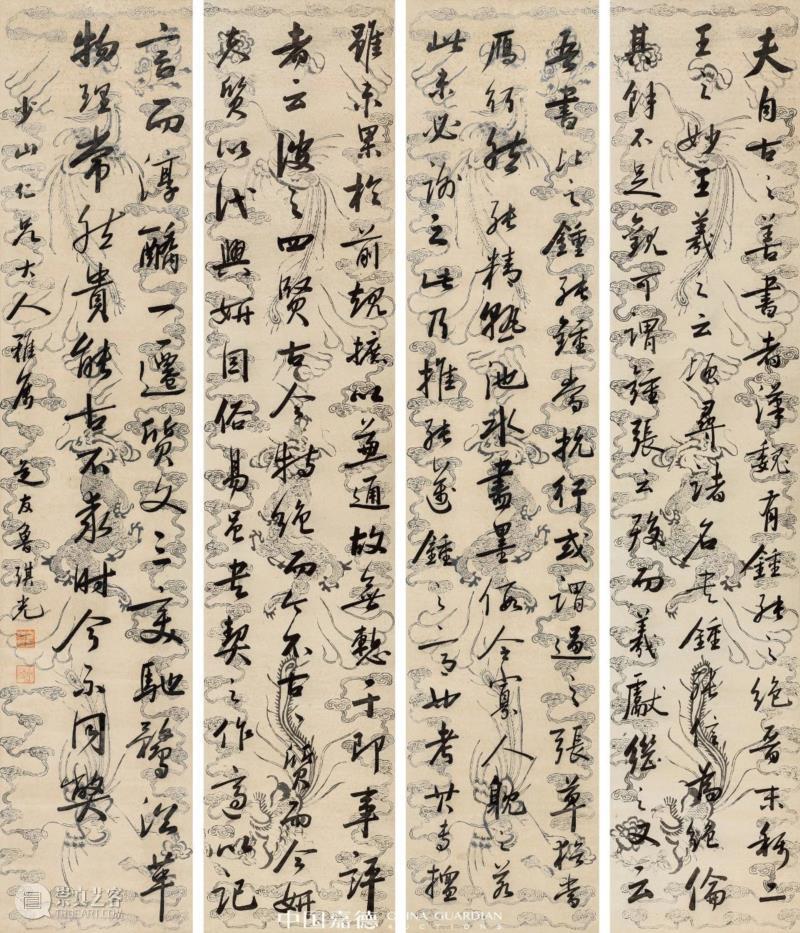 夫自古之善書者漢魏有鍾張之絕晉末稱二
王之妙王羲之云頃尋諸名書鍾張信為絕倫
其餘不足觀可謂鍾張云歿而羲獻繼之又云
吾書比之鍾張鍾當抗行或謂過之張草猶當
鴈行然張精熟池水盡墨假令寡人耽之若
此未必謝之此乃推張邁鍾之意也考其專擅
雖未果於前規摭以兼通故無慙于即事評
者云彼之四賢古今特絕而今不古、質而今妍
夫質以代興妍因俗易雖書契之作適以記
言而淳醨一遷質文三變馳騖沿革
物理常然貴能古不乖時今不同弊
少山仁兄大人雅屬 芝友魯琪光
崇真艺客
中国嘉德 CHINA GUARDIAN
AUCTIONS